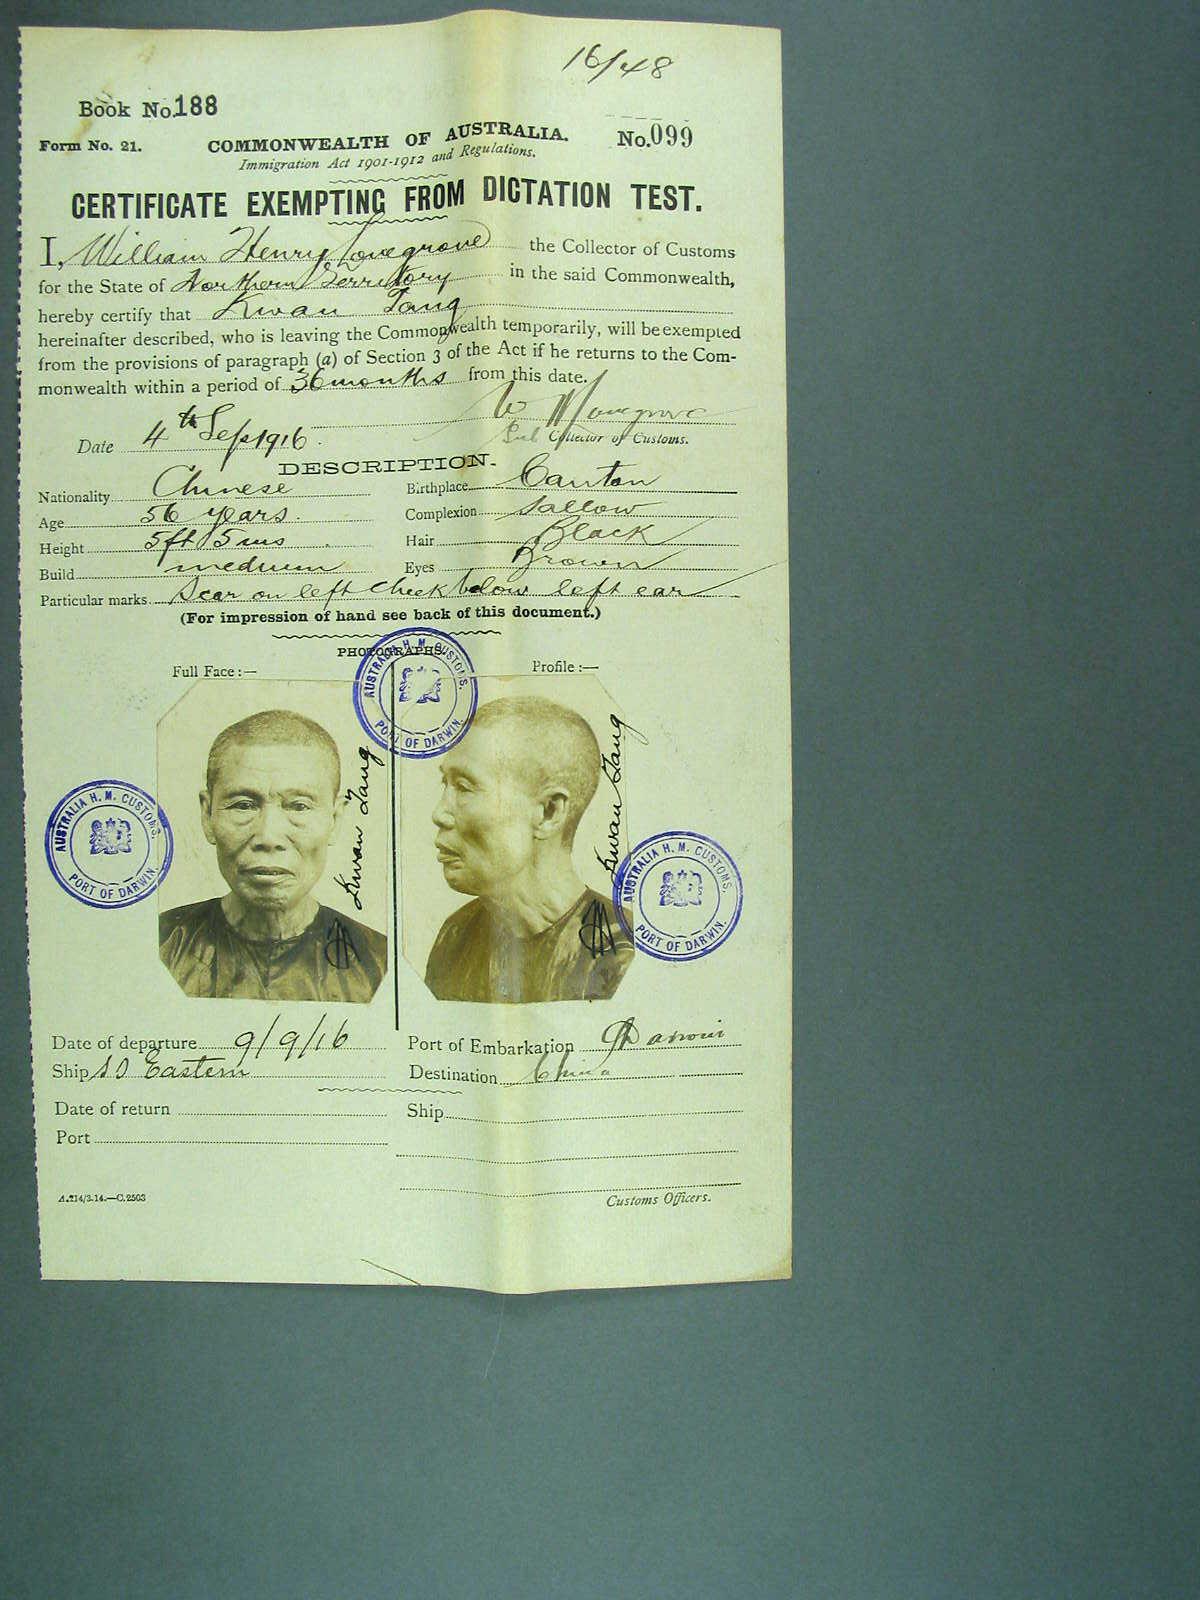 16/48
Book No. 188
Form No. 21. COMMONWEALTH OF AUSTRALIA. No. 099
Immigration Act 1901-1912 and Regulations.
CERTIFICATE EXEMPTING FROM DICTATION TEST.
I, William Henry Lovegrove the Collector of Customs
for the State of Northern Territory in the said Commonwealth,
hereby certify that Kwan Tang
hereinafter described, who is leaving the Commonwealth temporarily, will be exempted
from the provisions of paragraph (a) of Section 3 of the Act if he returns to the Com-
monwealth within a period of 36 months from this date.
W H Lovegrove
Date 4th Sep 1916. Sub Collector of Customs.
DESCRIPTION.
Nationality Chinese Birthplace Canton
Age 56 years. Complexion Sallow
Height 5ft 5 ins Hair Black
Build medium Eyes Brown
Particular marks Scar on left cheek below left ear
(For impression of hand see back of this document.)
PHOTOGRAPHS.
Full Face:— Profile:—
AUSTRALIA H. M. CUSTOMS.
PORT OF DARWIN.
Kwan Tang
Kwan Tang
AUSTRALIA H. M. CUSTOMS.
PORT OF DARWIN.
AUSTRALIA H. M. CUSTOMS.
PORT OF DARWIN.
Date of departure 9/9/16 Port of Embarkation Darwin
Ship SS Eastern Destination China
Date of return Ship
Port
A.214/3.14.—C.2503 Customs Officers.